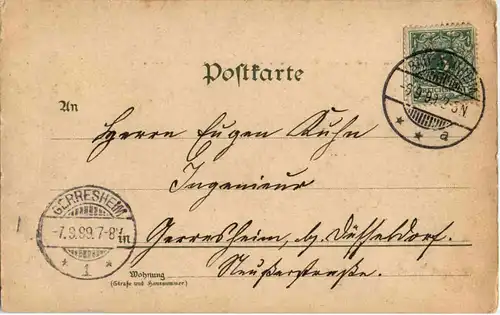 Postkarte
An
Herrn Eugen Kuhn
Ingenieur
in Gerresheim, bg. Düsseldorf.
Neußerstraße.
Wohnung
(Straße und Hausnummer)
GERRESHEIM
-7.9.99.7-8V
* 1 *
-6.9.99.
* * a